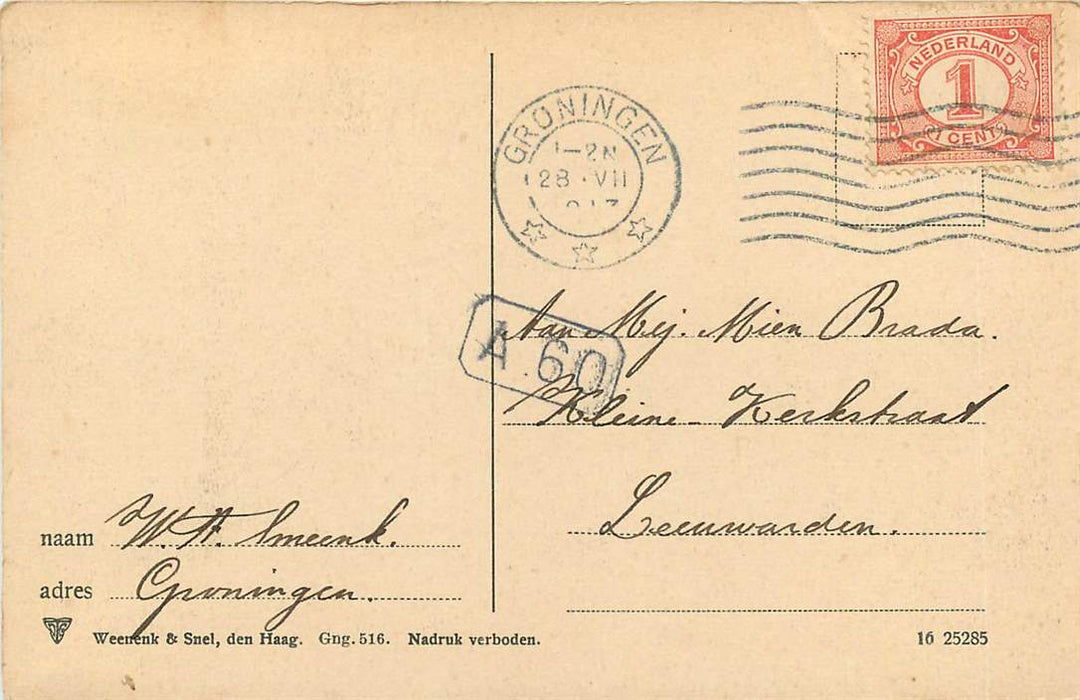 NEDERLAND
1
CENT
GRONINGEN
1-2N
28 · VII
A 60
Aan Mej. Mien Brada.
Kleine-Kerkstraat
Leeuwarden.
naam W.H. Smeenk.
adres Groningen.
Weenenk & Snel, den Haag. Gng. 516. Nadruk verboden.
16 25285